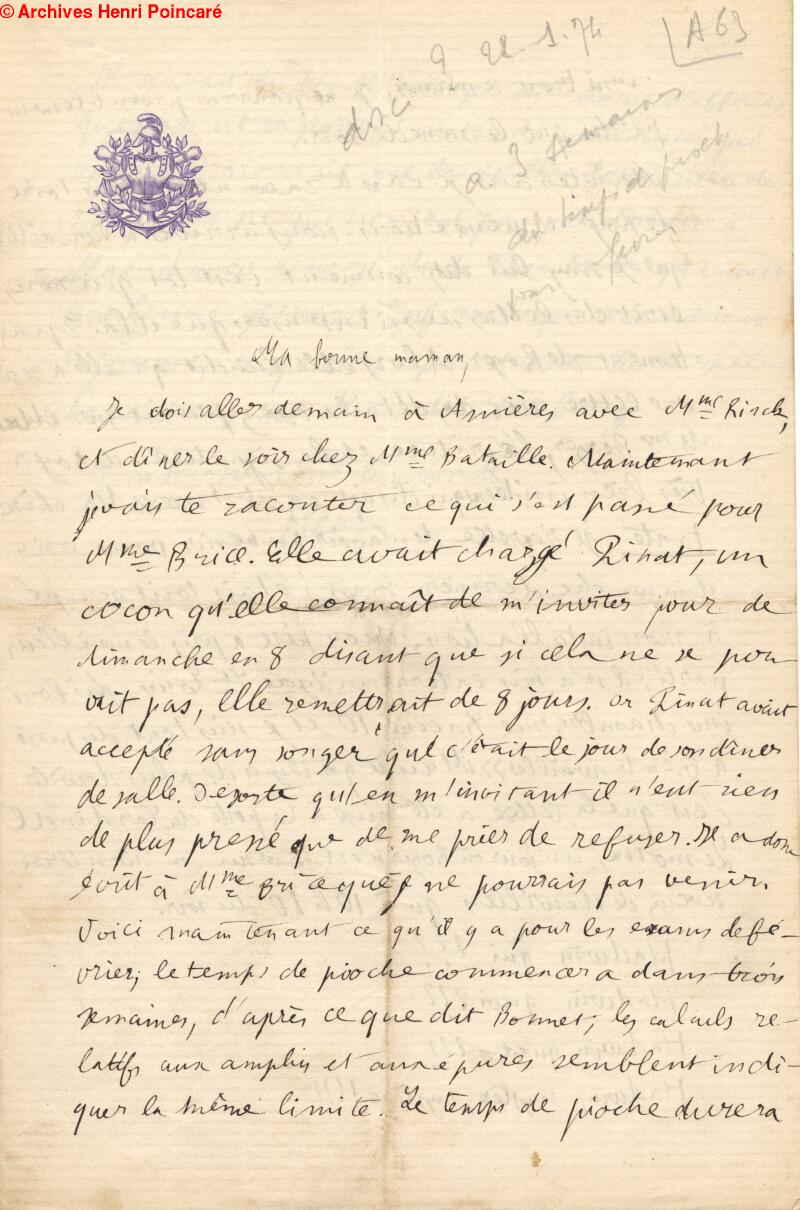 © Archives Henri Poincaré
A 63
22-1.74
donc
à 3 semaines
du temps de pioche
pour février
Ma bonne maman,
Je dois aller demain à Asnières avec Mme Rinck,
et dîner le soir chez Mme Bataille. Maintenant
je vais te raconter ce qui s'est passé pour
Mme Brice. Elle avait chargé Rinat, un
cocon qu'elle connaît de m'inviter pour de
dimanche en 8 disant que si cela ne se pou-
vait pas, elle remettrait de 8 jours. or Rinat avait
accepté sans songer que c'était le jour de son dîner
de salle. De sorte qu'en m'invitant il n'eut rien
de plus pressé que de me prier de refuser. Il a donc
écrit à Mme Brice que je ne pourrais pas venir.
Voici maintenant ce qu'il y a pour les exams de fé-
vrier; le temps de pioche commencera dans trois
semaines, d'après ce que dit Bonnet; les calculs re-
latifs aux amphis et aux épures semblent indi-
quer la même limite. Le temps de pioche durera